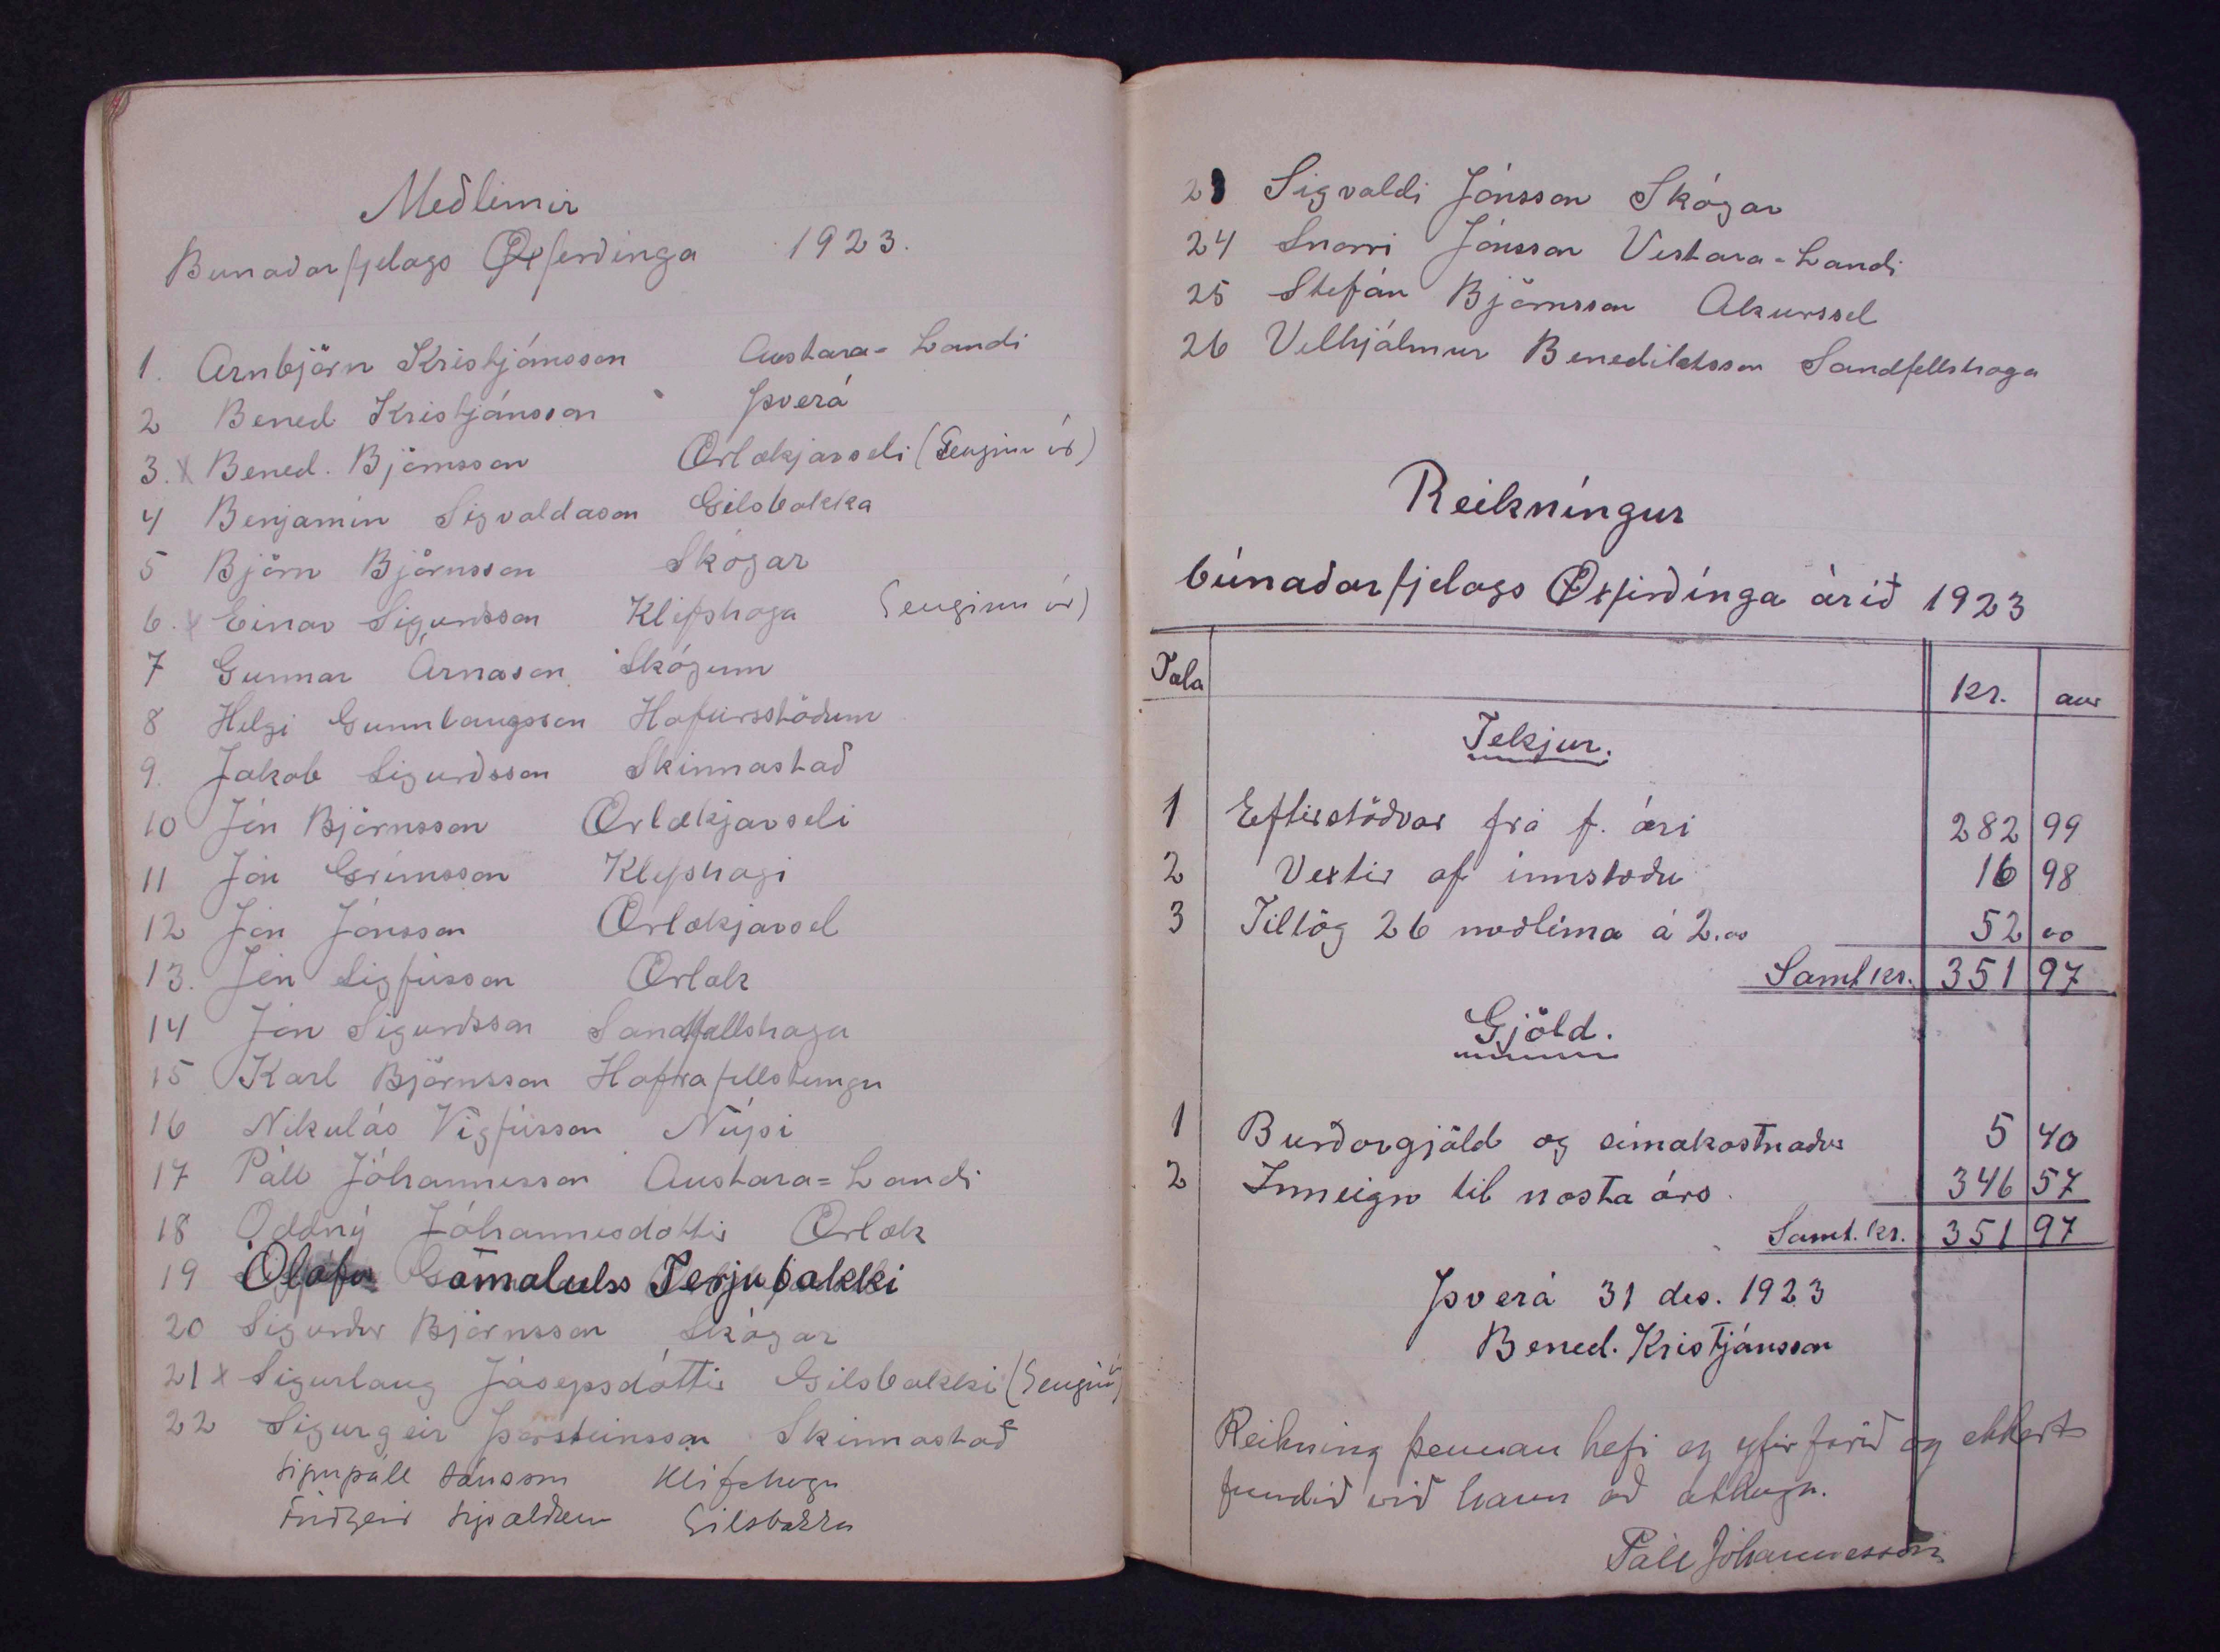 Meðlimir
Bunaðarfjelags Öxferdinga 1923.
1. Arnbjörn Kristjánsson Austara-Landi
2 Bened Kristjánsson Þverá
3. x Bened. Björnsson Ærlækjarseli (Genginn úr)
4 Benjamín Sigvaldason Gilsbakka
5 Björn Björnsson Skógar
6. x Einar Sigurðsson Klifshaga Genginn úr)
7 Gunnar Arnason Skógum
8 Helgi Gunnlaugsson Hafursstöðum
9. Jakob Sigurðsson Skinnastað
10 Jón Björnsson Ærlækjarseli
11 Jón Grímsson Klifshagi
12 Jón Jónsson Ærlækjarsel
13. Jón Sigfússon Ærlæk
14 Jón Sigurðsson Sandfellshaga
15 Karl Björnsson Hafrafellstungu
16 Nikulás Vigfússon Núpi
17 Páll Jóhannesson Austara=Landi
18 Oddný Jóhannesdottir Ærlæk
19 Ólafur Gamalulss Ferjubakki
20 Sigurður Björnsson Skógar
21 x Sigurlaug Jósepsdóttir Gilsbakki (Gengin
22 Sigurgeir Þorsteinsson Skinnastað
Sigurpáll Jónsson Klifshaga
Friðgeir Gilsbakka
23 Sigvaldi Jónsson Skógar
24 Snorri Jónsson Vestara-Landi
25 Stefán Björnsson Akurssel
26 Vilhjálmur Benediktsson Sandfellshaga
Reikníngur
búnaðarfjelags Öxfirðínga árið 1923
Tala kr. aur
Tekjur.
1 Eftirstöðvar frá f. ári 282 99
2 Vextir af innstæðu 16 98
3 Tillög 26 meðlima á 2.00 52 00
Samt kr. 351 97
Gjöld.
1 Burðargjöld og símakostnaður 5 40
2 Inneign til næsta árs 346 57
Samt. kr. 351 97
Þverá 31 des. 1923
Bened. Kristjánsson
Reikning þennan hefi eg yfirfarið og ekkert
fundið við hann að athuga.
Páll Jóhannesson